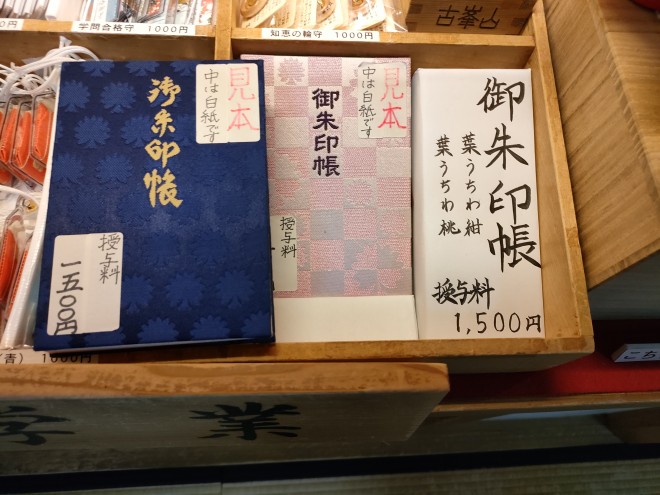 学問合格守 1000円
知恵の輪守 1000円
古峯
御朱印帳
見本
中は白紙です
授与料
一五〇〇円
御朱印帳
見本
中は白紙です
授与料
御朱印帳
葉うちわ紺
葉うちわ桃
授与料
1,500円
(青) 1000円
学業
こち